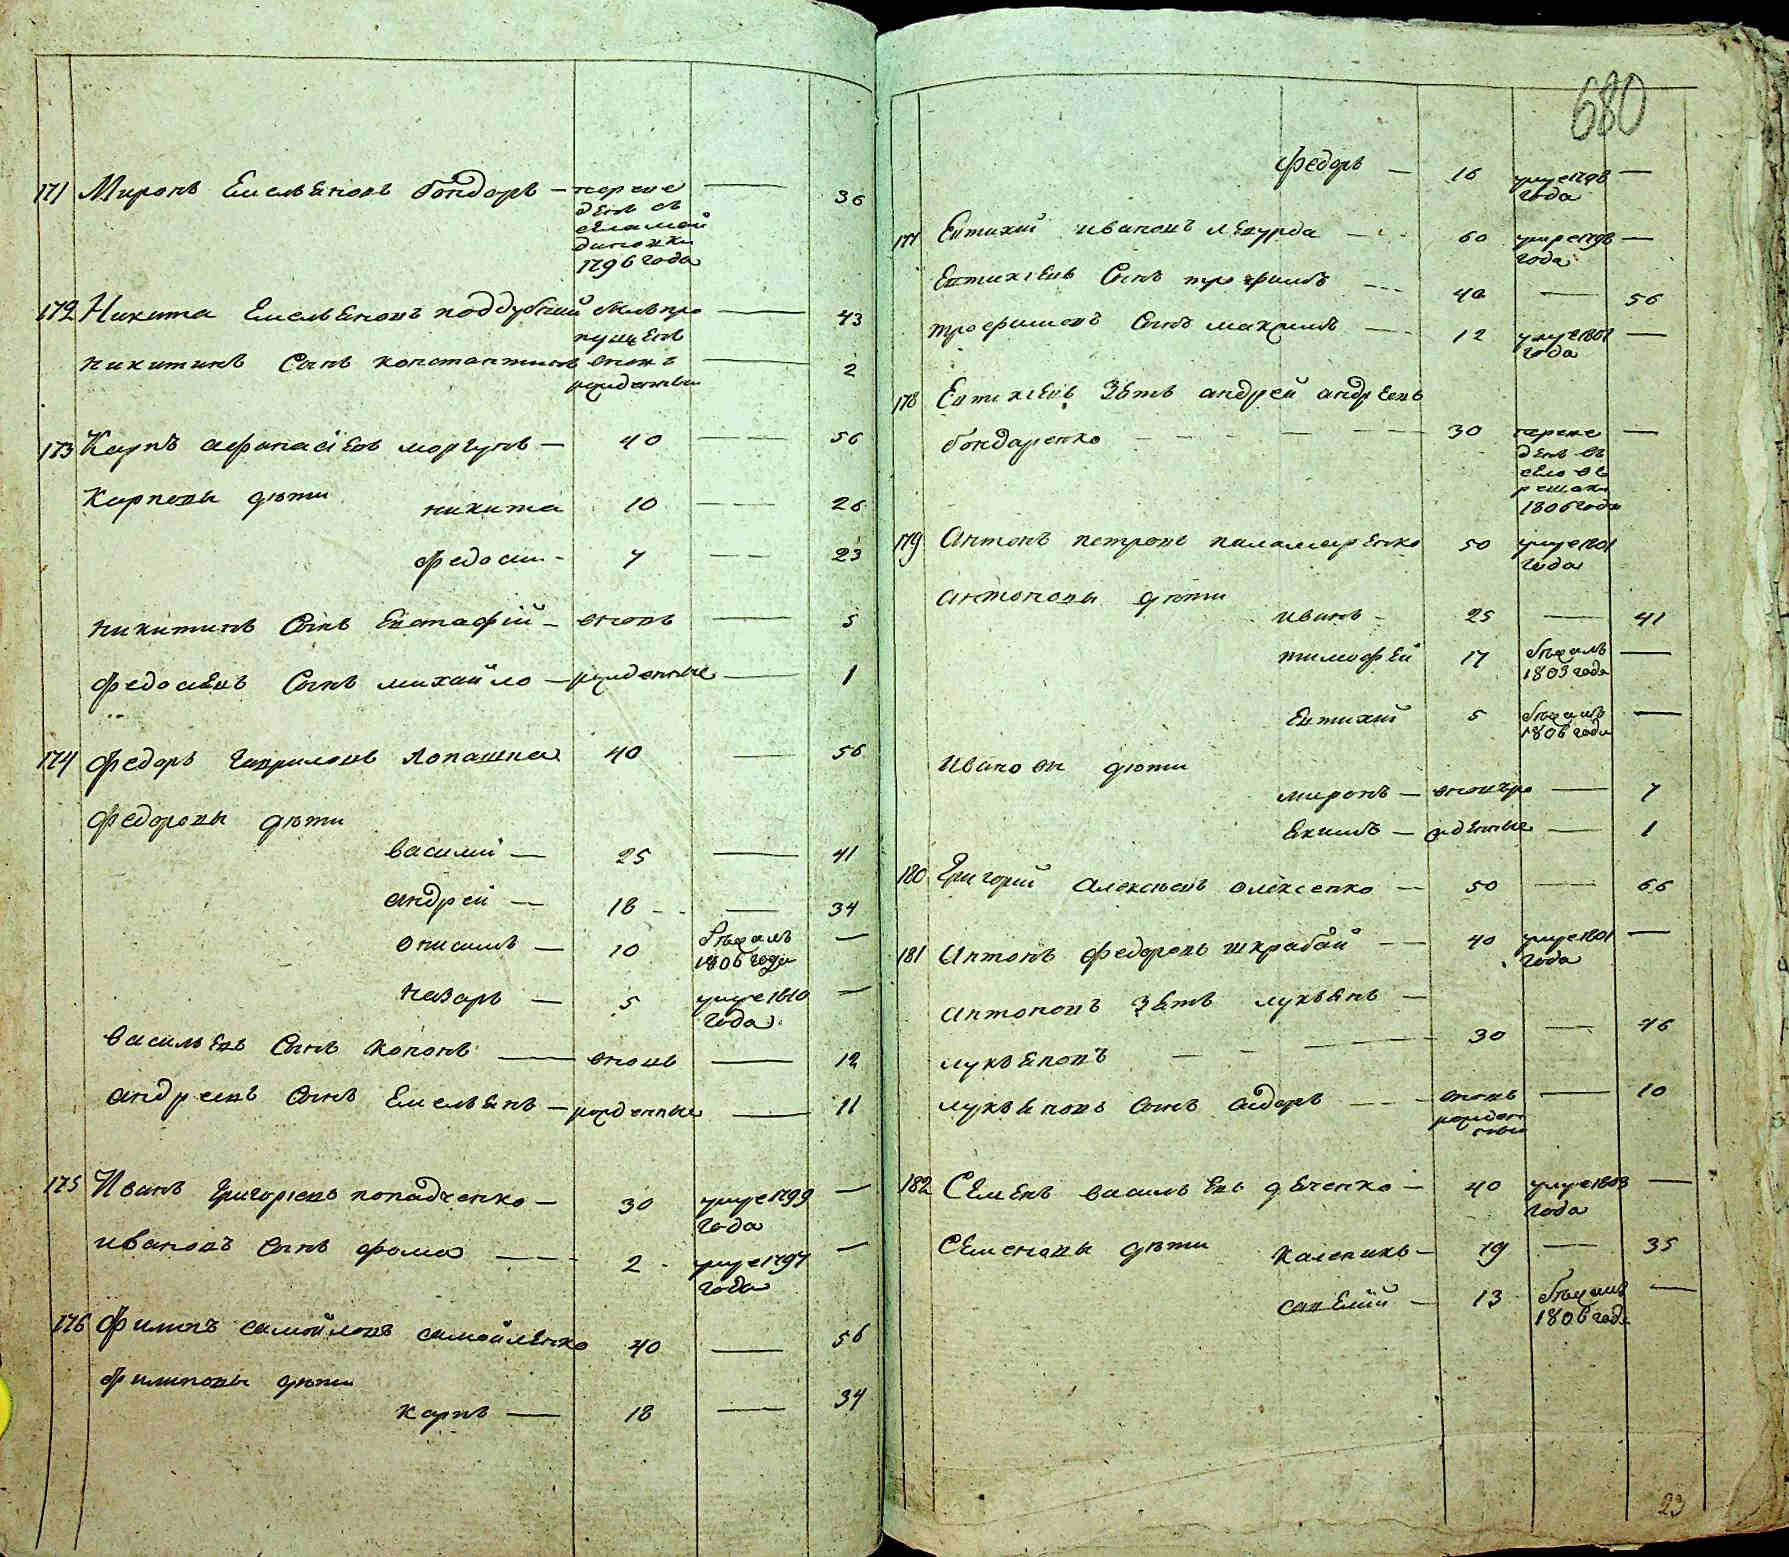 680
171 Миронъ Емельяновъ бондарь — переве — 36
денъ съ
села мой
диновки
1796 года
172 Никита Емельяновъ поддубний былъ про — 43
пущенъ
никитинъ Сынъ константинъ вновь — 2
рожденны
173 Карпъ афанасіевъ моргунъ — 40 — 56
Карповы дѣти
никита 10 — 26
федосій - 7 — 23
никитинъ Сынъ Евстафій — вновь — 5
федосіевъ Сынъ михайло — рожденные — 1
174 федоръ гавриловъ Лопашка 40 — 56
федоровы дѣти
василій — 25 — 41
андрей — 18 — 34
онисимъ — 10 бѣжалъ —
1806 года
назаръ — 5 умре 1810 —
года
васильевъ Сынъ кононъ — вновь — 12
андреевъ Сынъ Емельянъ — рожденные — 11
175 Иванъ григоріевъ попадченко — 30 умре 1799 —
года
ивановъ Сынъ фома — 2 умре 1797 —
года
176 филипъ самойловъ самойленко 40 — 56
филиповы дѣти
карпъ — 18 — 34
федоръ — 16 умре 1798 —
года
177 Евтихий ивановъ 60 умре 1798 —
года
Евтихіевъ Сынъ трофимъ — 40 — 56
трофимовъ Сынъ максимъ — 12 умре 1801 —
года
178 Евтихіевъ зять андрей андреевъ
бондаренко — 30 переве —
денъ въ
село
1806 года
179 антонъ петровъ паламаренко 50 умре 1801
года
антоновы дѣти
иванъ - 25 — 41
тимофей 17 бѣжалъ —
1803 года
Евтихий 5 бѣжалъ —
1806 года
Ивановы дѣти
миронъ — вновь ро — 7
Екимъ — жденные — 1
180 григорий алексѣевъ олексенко — 50 — 66
181 антонъ федоровъ шкрабай — 40 умре 1801 —
года
антоновъ зять лукьянъ —
лукьяновъ — 30 — 46
лукьяновъ сынъ сидоръ — вновь — 10
рожден
ные
182 Семенъ васильевъ дяченко — 40 умре 1803 —
года
Семеновы дѣти каленикъ — 19 — 35
савелий — 13 бѣжалъ —
1806 года
23